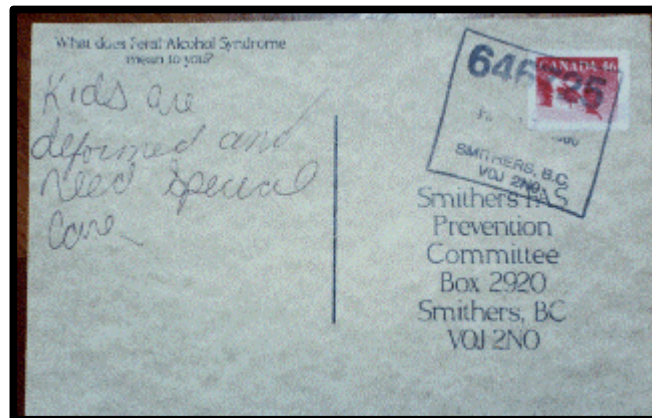 What does Fetal Alcohol Syndrome
mean to you?
Kids are
deformed and
need special
care
CANADA 46
646725
SMITHERS, B.C.
V0J 2N0
Smithers FAS
Prevention
Committee
Box 2920
Smithers, BC
V0J 2N0